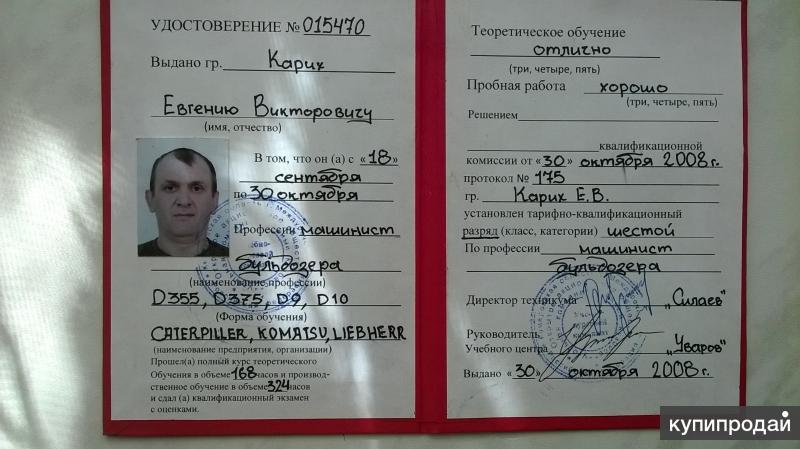 УДОСТОВЕРЕНИЕ № 015470
Выдано гр. Карих
Евгению Викторовичу
(имя, отчество)
В том, что он (а) с «18»
сентября
по 30 октября
Профессии машинист
бульдозера
(наименование профессии)
D355, D375, D9, D10
(Форма обучения)
CATERPILLER, KOMATSU, LIEBHERR
(наименование предприятия, организации)
Прошел(а) полный курс теоретического
Обучения в объеме 168 часов и производ-
ственное обучение в объеме 324 часов
и сдал (а) квалификационный экзамен
с оценками.
Теоретическое обучение
отлично
(три, четыре, пять)
Пробная работа хорошо
(три, четыре, пять)
Решением
квалификационной
комиссии от «30» октября 2008 г.
протокол № 175
гр. Карих Е.В.
установлен тарифно-квалификационный
разряд (класс, категории) шестой
По профессии машинист
бульдозера
Директор техникума „Силаев"
Руководитель
Учебного центра „Уваров"
Выдано «30» октября 2008 г.
купипродай